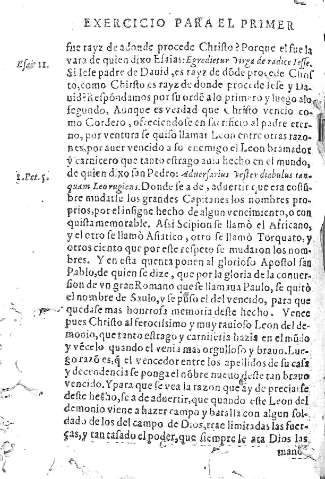 EXERCICIO PARA EL PRIMER
fue rayz de adonde procede Christo? Porque el fue la
Esai. 11. vara de quien dixo Esaias: Egredietur virga de radice Iesse.
Si Iese padre de Dauid, es rayz de dõde procede Chris
to, como Christo es rayz de donde procede Iese y Da
uid? Respondamos por su ordẽ a lo primero y luego a lo
segundo. Aunque es verdad que Christo vencio
como Cordero, ofreciendose en sacrificio al padre eter-
no, por ventura se quiso llamar Leon entre otras razo-
nes, por auer vencido a su enemigo el Leon bramador
y carnicero que tanto estrago auia hecho en el mundo,
1. Pet. 5. de quien dixo san Pedro: Aduersarius vester diabolus tan-
quam Leo rugiens. Donde se a de aduertir que era costũ-
bre mudarse los grandes Capitanes los nombres pro-
prios, por el insigne hecho de algun vencimiento, o con
quista memorable. Assi Scipion se llamò el Africano,
y el otro se llamò Asiatico, otro se llamò Torquato, y
otros ciento que por este respeto se mudaron los nom-
bres. Y en esta quenta ponen al glorioso Apostol san
Pablo, de quien se dize, que por la gloria de la conuer-
sion de vn gran Romano que se llamaua Paulo, se quitò
el nombre de Saulo, y se puso el del vencido, para que
quedasse mas honrosa memoria deste hecho. Vence
pues Christo al ferocissimo y muy rauioso Leon del de-
monio, que tanto estrago y carniceria hazia en el mũdo
y vẽcelo quando el venia mas orgulloso y brauo. Lue-
go razõ es, q̃ el vencedor entre los apellidos de su casa
y decendencia se ponga el nõbre nueuo deste tan brauo
vencido. Y para que se vea la razon que ay de preciarse
deste hecho, se a de aduertir, que quando este Leon del
demonio viene a hazer campo y batalla con algun sol-
dado de los del campo de Dios, trae limitadas las fuer-
ças, y tan tasado el poder, que siempre le ata Dios las
mano